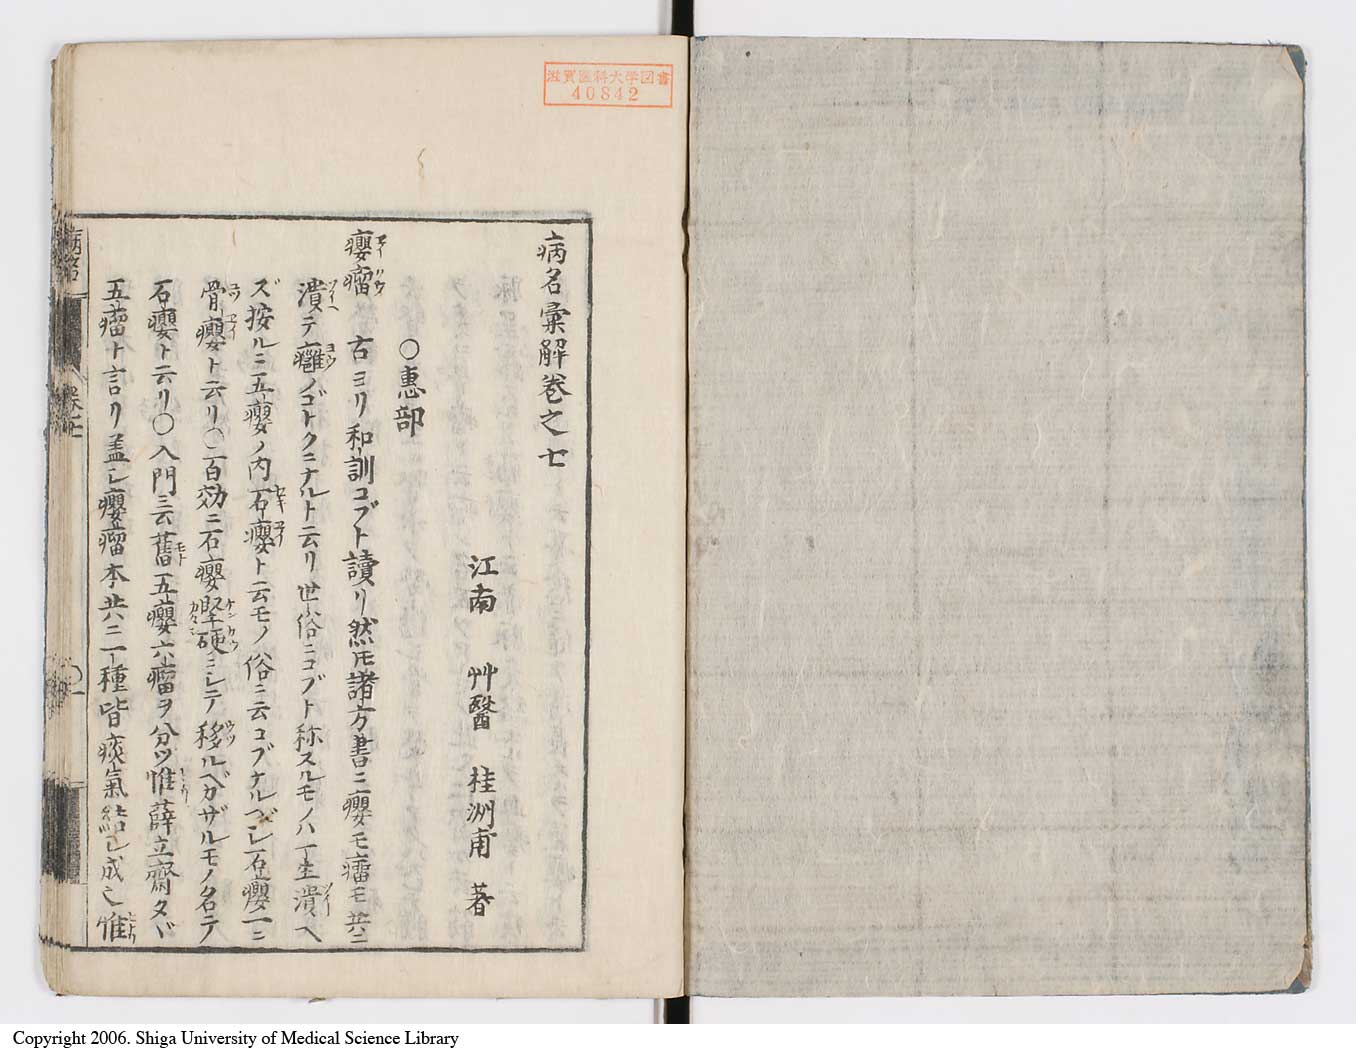 滋賀医科大学図書
40842
病名彙解卷之七
江南 艸醫 桂洲甫 著
〇惠部
癭瘤 古ヨリ和訓コブト讀リ然𪜈諸方書ニ癭モ瘤モ共ニ
潰テ癰ノゴトクニナルト云リ世俗ニコブト称スルモノハ一生潰ヘ
ズ按ルニ五癭ノ内石癭ト云モノ俗ニ云コブナルベシ石癭一ニ
骨癭ト云リ〇百効ニ石癭堅硬ニシテ移ルベカザルモノ名テ
石癭ト云リ〇入門ニ云舊五癭六瘤ヲ分ツ惟薛立齋タヾ
五瘤ト言リ盖シ癭瘤本共ニ一種皆痰氣結シ成之惟
病名
卷七
〇一
Copyright 2006. Shiga University of Medical Science Library